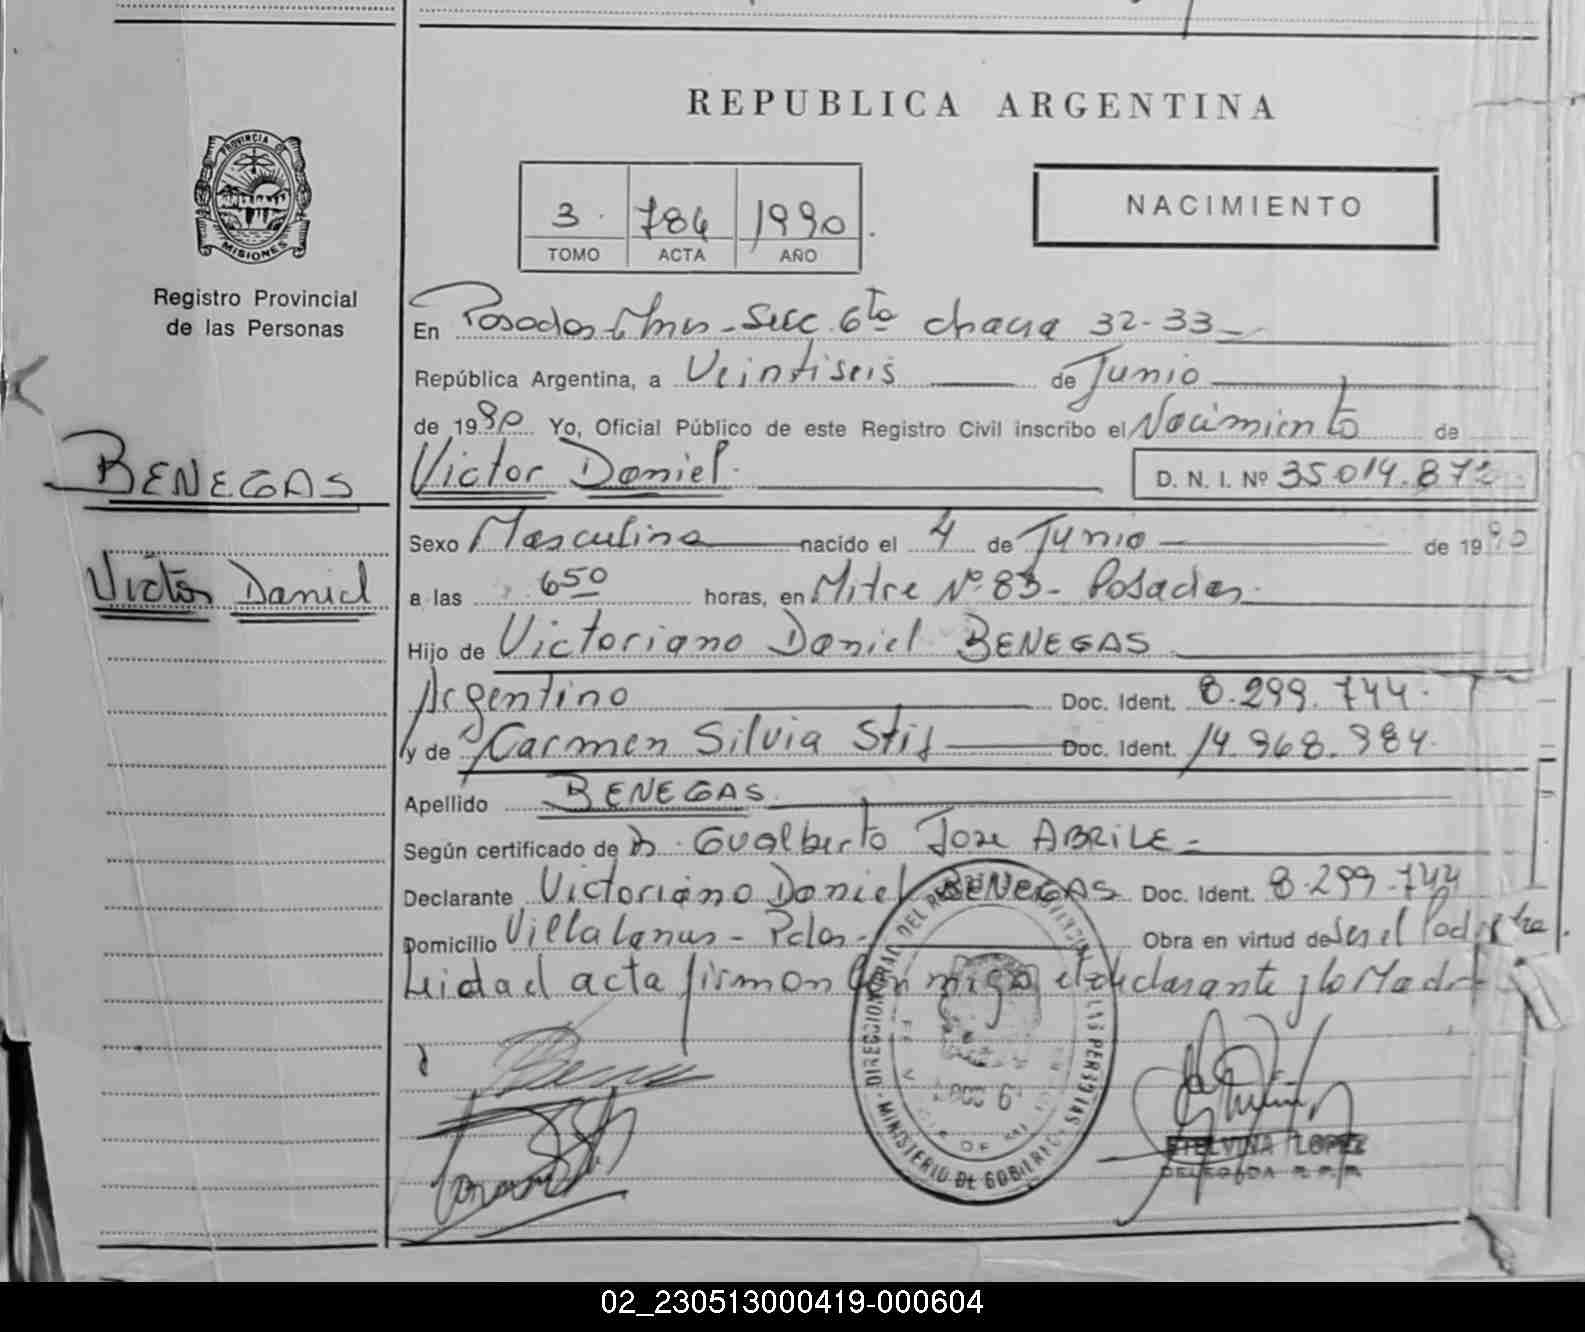 REPUBLICA ARGENTINA
PROVINCIA DE
MISIONES
Registro Provincial
de las Personas
3 784 1990
TOMO ACTA AÑO
NACIMIENTO
En Posadas Mnes - Secc 6ta chacra 32-33
República Argentina, a Veintiseis de Junio
de 1990 Yo, Oficial Público de este Registro Civil inscribo el Nacimiento de
BENEGAS
Victor Daniel D. N. I. Nº 35.014.872
Sexo Masculino nacido el 4 de Junio de 1990
Victor Daniel
a las 650 horas, en Mitre Nº 83 - Posadas
Hijo de Victoriano Daniel BENEGAS
Argentino Doc. Ident. 8.299.744
y de Carmen Silvia Doc. Ident. 14.968.984
Apellido BENEGAS
Según certificado de Dr. Gualberto Jose ABRILE
Declarante Victoriano Daniel BENEGAS Doc. Ident. 8.299.744
Domicilio Villa Lanus - Pdas - Obra en virtud de Ser el Padre
Leida el acta firman conmigo el declarante y la Madre
MINISTERIO DE GOBIERNO
STELVINA LOPEZ
DELEGADA R.P.P.
02_230513000419-000604